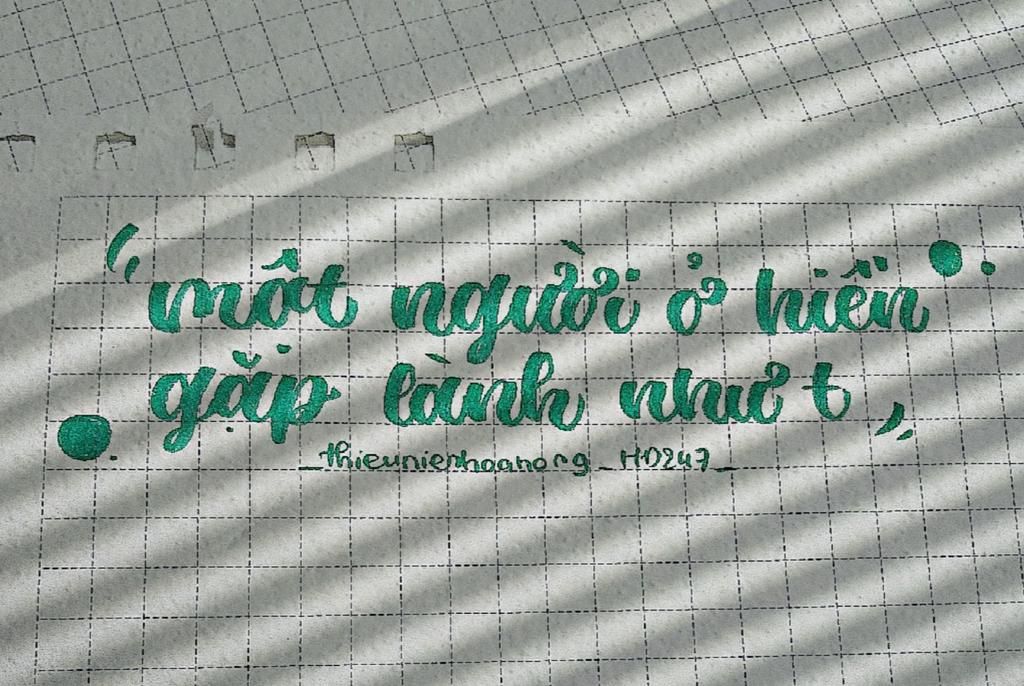 “một người ở hiền
gặp lành như t”
_thieunienhoanang_HD247_